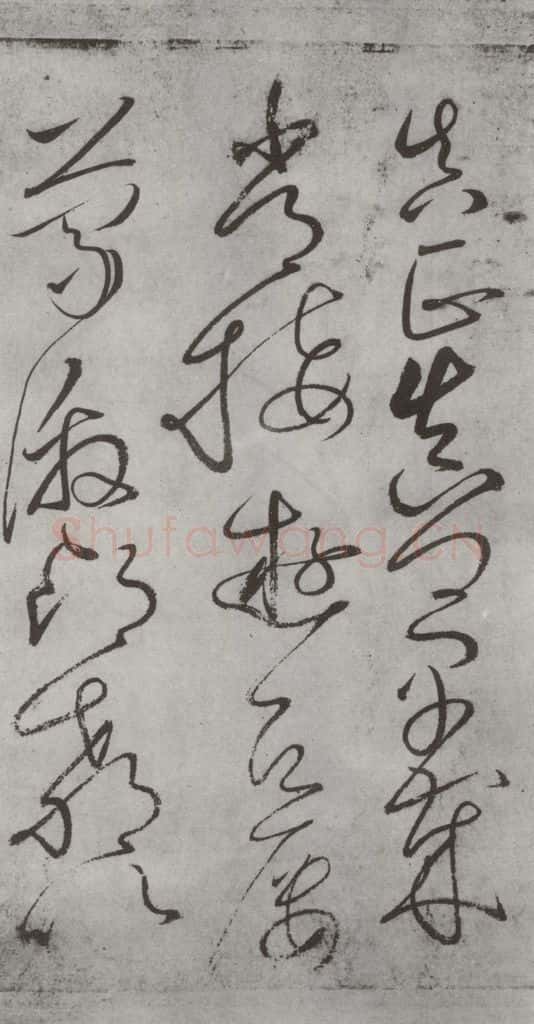 真正真卿早歲
常接遊居屢
蒙激昂教以
Shufawang.CN